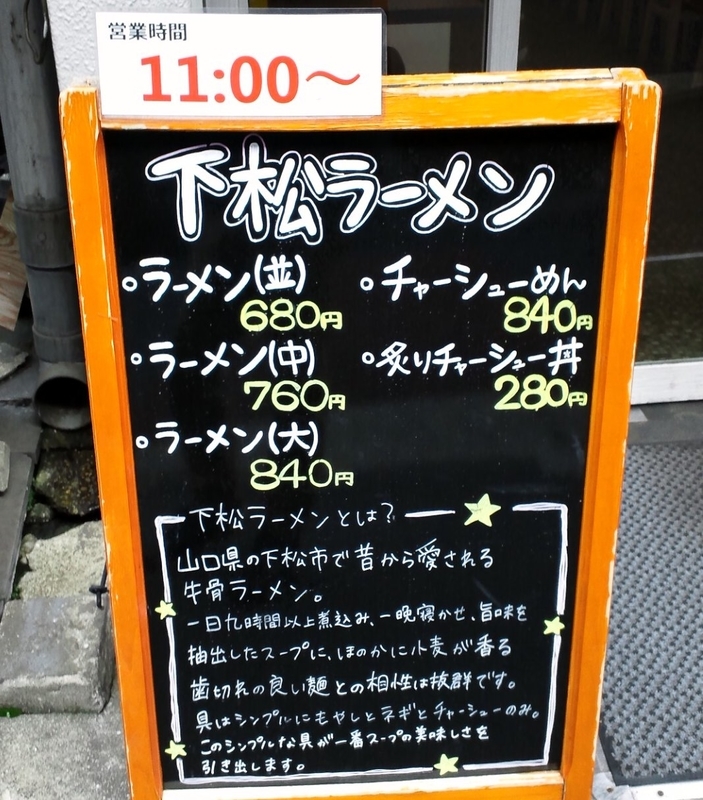 営業時間
11:00～
下松ラーメン
。ラーメン(並)
680円
。ラーメン(中)
760円
。ラーメン(大)
840円
。チャーシューめん
840円
。炙りチャーシュー丼
280円
下松ラーメンとは?
山口県の下松市で昔から愛される
牛骨ラーメン。
一日九時間以上煮込み、一晩寝かせ、旨味を
抽出したスープに、ほのかに小麦が香る
歯切れの良い麺との相性は抜群です。
具はシンプルにもやしとネギとチャーシューのみ。
このシンプルな具が一番スープの美味しさを
引き出します。